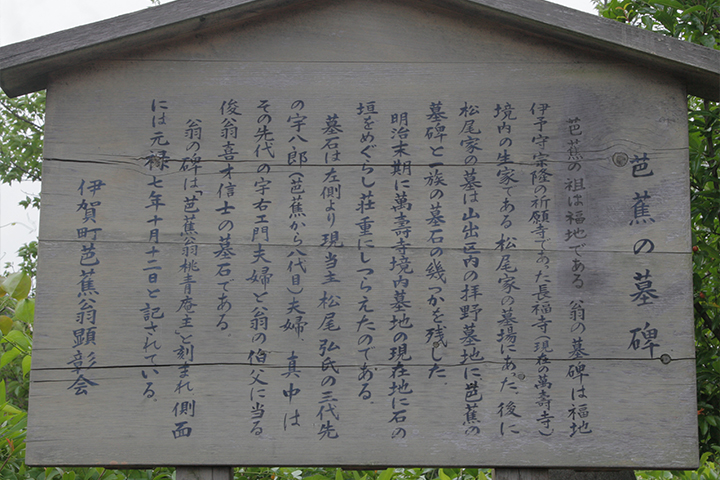 芭蕉の墓碑
芭蕉の祖は福地である 翁の墓碑は福地
伊予守宗隆の祈願寺であった長福寺(現在の萬寿寺)
境内の生家である 松尾家の墓場にあった。後に
松尾家の墓は山出区内の拝野墓地に芭蕉の
墓碑と一族の墓石の幾つかを残した
明治末期に萬壽寺境内墓地の現在地に石の
垣をめぐらし荘重にしつらえたのである。
墓石は左側より現当主 松尾 弘氏の三代先
の宇八郎(芭蕉から八代目)夫婦、真中は
その先代の宇右ェ門夫婦と翁の伯父に当る
俊翁喜才信士の墓石である。
翁の碑は「芭蕉翁桃青庵主」と刻まれ側面
には元禄七年十月十二日と記されている。
伊賀町芭蕉翁顕彰会